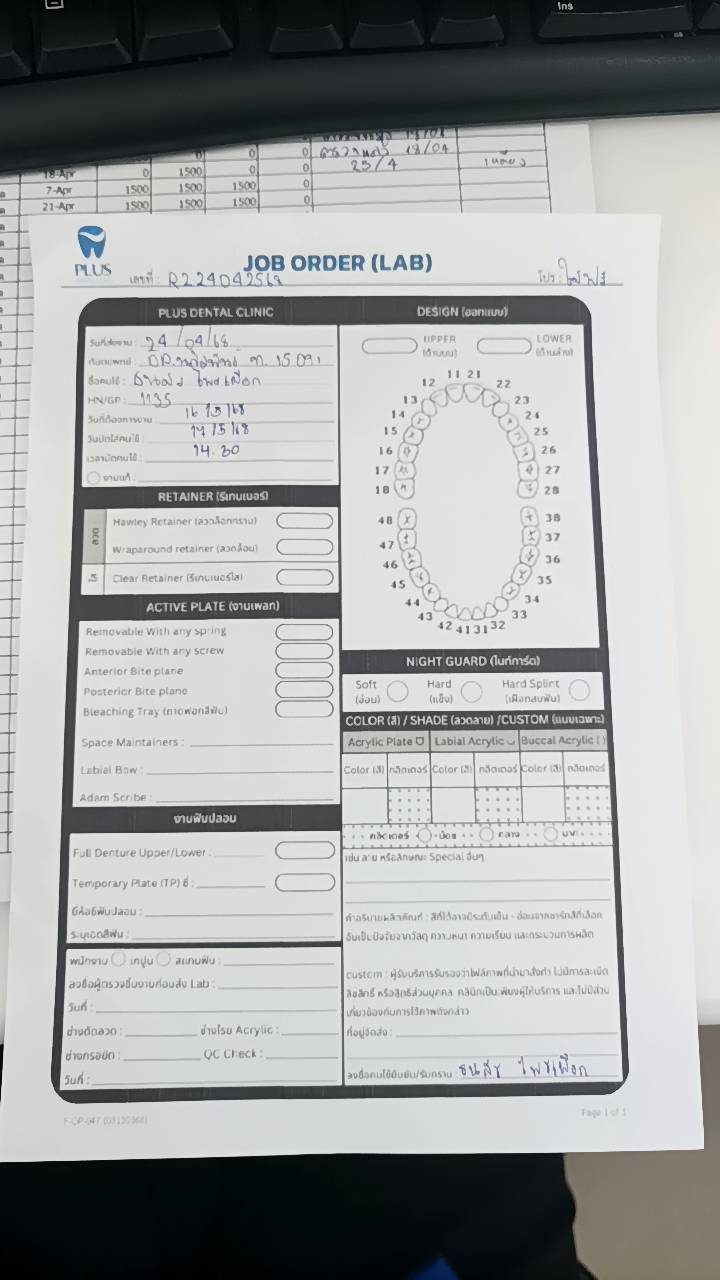 Ins
18/04
18-Apr 0 1500 0 0 18/04
7-Apr 1500 1500 1500 0 23/4
21-Apr 1500 1500 1500 0
PLUS
JOB ORDER (LAB)
เลขที่ : R224042568
โปร :
PLUS DENTAL CLINIC
วันที่ส่งงาน : 24/04/68
ทันตแพทย์ : DR.
ชื่อคนไข้ :
HN/GP : 1135
วันที่ต้องการงาน : 16/5/68
วันนัดใส่คนไข้ : 17/5/68
เวลานัดคนไข้ : 14.30
งานแก้ :
RETAINER (รีเทนเนอร์)
ลวด
Hawley Retainer (ลวดล็อกกราม)
Wraparound retainer (ลวดล้อม)
ใส
Clear Retainer (รีเทนเนอร์ใส)
ACTIVE PLATE (งานเพลท)
Removable With any spring
Removable With any screw
Anterior Bite plane
Posterior Bite plane
Bleaching Tray (ถาดฟอกสีฟัน)
Space Maintainers :
Labial Bow :
Adam Scribe :
งานฟันปลอม
Full Denture Upper/Lower :
Temporary Plate (TP) ซี่ :
ยี่ห้อซี่ฟันปลอม :
ระบุเฉดสีฟัน :
พนักงาน เทปูน สแกนฟัน :
ลงชื่อผู้ตรวจชิ้นงานก่อนส่ง Lab :
วันที่ :
ช่างดัดลวด : ช่างโรย Acrylic :
ช่างกรอขัด : QC Check :
วันที่ :
DESIGN (ออกแบบ)
UPPER (ด้านบน)
LOWER (ด้านล่าง)
11 21
12 22
13 23
14 24
15 25
16 26
17 27
18 28
48 38
47 37
46 36
45 35
44 34
43 33
42 41 31 32
NIGHT GUARD (ไนท์การ์ด)
Soft (อ่อน)
Hard (แข็ง)
Hard Splint (เฝือกสบฟัน)
COLOR (สี) / SHADE (ลวดลาย) /CUSTOM (แบบเฉพาะ)
Acrylic Plate Labial Acrylic Buccal Acrylic ( )
Color (สี) กลิตเตอร์ Color (สี) กลิตเตอร์ Color (สี) กลิตเตอร์
กลิตเตอร์ น้อย กลาง มาก
เช่น ลาย หรือลักษณะ Special อื่นๆ
คำอธิบายผลิตภัณฑ์ : สีที่ได้อาจมีระดับเข้ม - อ่อนจากชาร์ทสีที่เลือก
อันเป็นปัจจัยจากวัสดุ ความหนา ความเรียบ และกระบวนการผลิต
custom : ผู้รับบริการรับรองว่าไฟล์ภาพที่นำมาสั่งทำ ไม่มีการละเมิด
ลิขสิทธิ์ หรือสิทธิส่วนบุคคล คลินิกเป็นเพียงผู้ให้บริการ และไม่มีส่วน
เกี่ยวข้องกับการใช้ภาพดังกล่าว
ที่อยู่จัดส่ง :
ลงชื่อคนไข้ยืนยัน/รับทราบ :
F-OP-047 (03150368)
Page 1 of 1